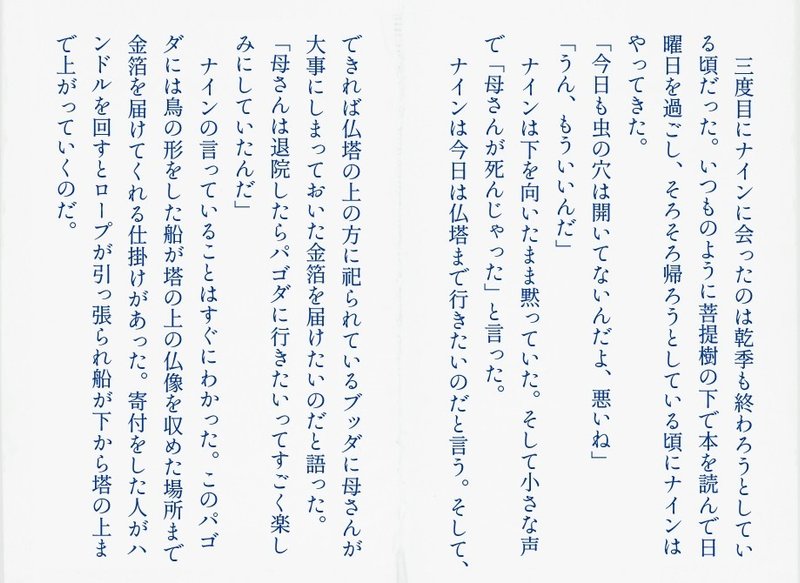 三度目にナインに会ったのは乾季も終わろうとしてい
る頃だった。いつものように菩提樹の下で本を読んで日
曜日を過ごし、そろそろ帰ろうとしている頃にナインは
やってきた。
「今日も虫の穴は開いてないんだよ、悪いね」
「うん、もういいんだ」
ナインは下を向いたまま黙っていた。そして小さな声
で「母さんが死んじゃった」と言った。
ナインは今日は仏塔まで行きたいのだと言う。そして、
できれば仏塔の上の方に祀られているブッダに母さんが
大事にしまっておいた金箔を届けたいのだと語った。
「母さんは退院したらパゴダに行きたいってすごく楽し
みにしていたんだ」
ナインの言っていることはすぐにわかった。このパゴ
ダには鳥の形をした船が塔の上の仏像を収めた場所まで
金箔を届けてくれる仕掛けがあった。寄付をした人がハ
ンドルを回すとロープが引っ張られ船が下から塔の上ま
で上がっていくのだ。